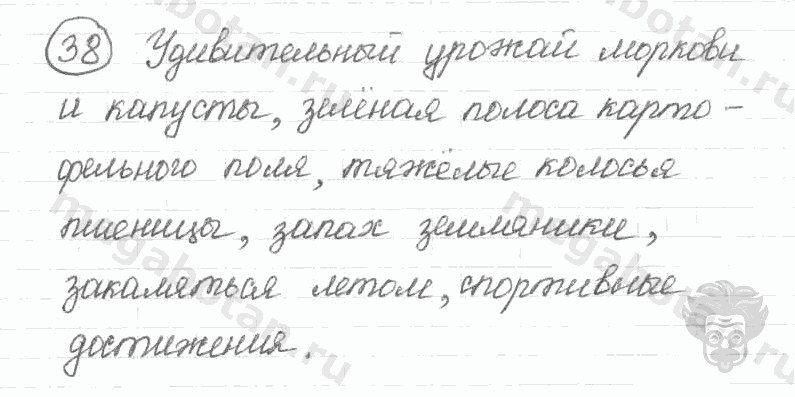 38 Удивительный урожай моркови
и капусты, зелёная полоса карто-
фельного поля, тяжёлые колосья
пшеницы, запах земляники,
закаляться летом, спортивные
достижения.
megabotan.ru